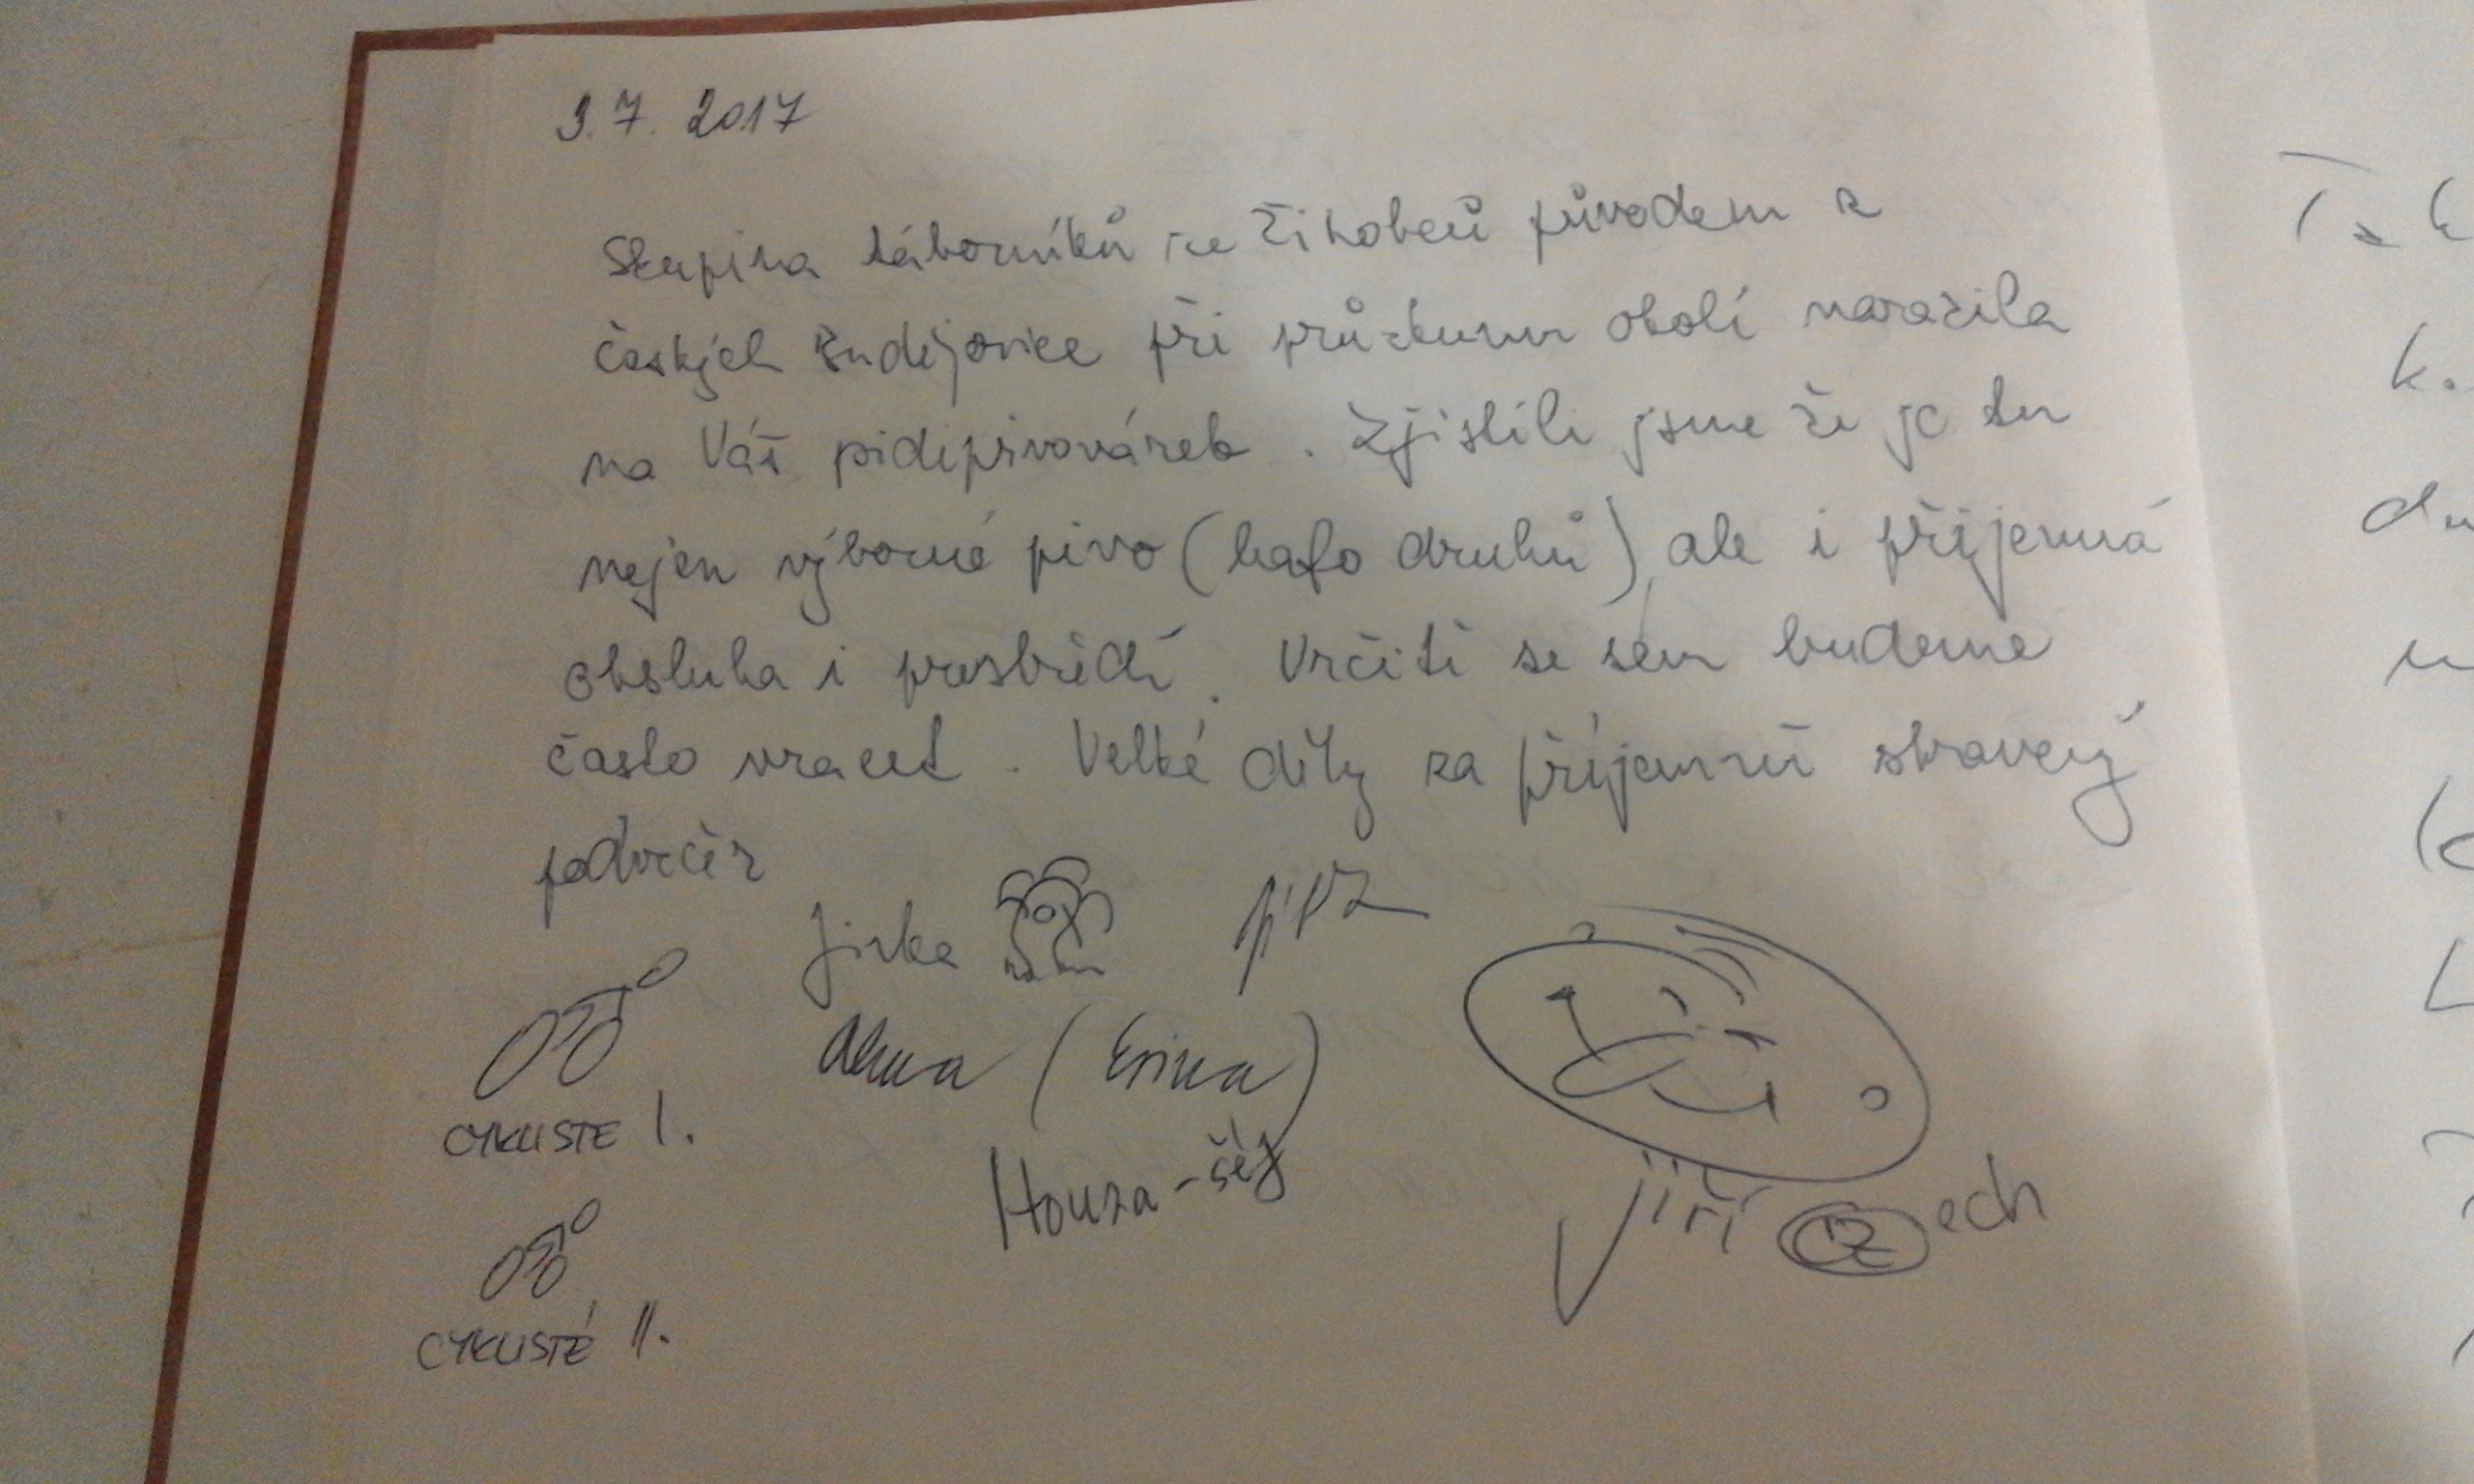 3.7. 2017
Skupina táborníků ze Žihobců původem z
českých Budějovice při průzkumu okolí narazila
na Váš pidipivovárek. Zjistili jsme že je tu
nejen výborné pivo (hafo druhů), ale i příjemná
obsluha i prostředí. Určitě se sem budeme
často vracet. Velké díky za příjemně stravený
podvečer
Jirka
(Erika)
Honza - šéf
Jiří ech
CYKLISTÉ I.
CYKLISTÉ II.